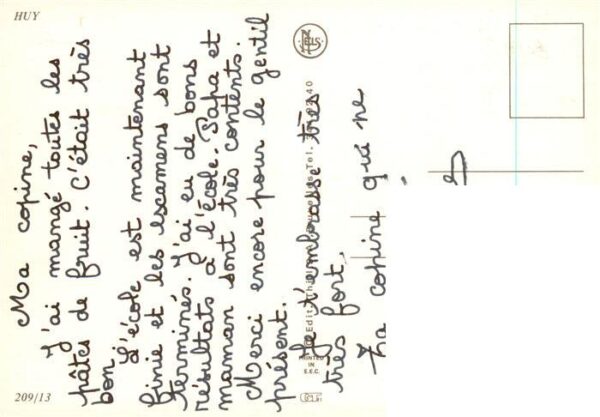 HUY
Ma copine,
J'ai mangé toutes les
pâtes de fruit. C'était très
bon.
L'école est maintenant
finie et les escamens sont
terminés. J'ai eu de bons
résultats à l'école. Papa et
maman sont très contents.
Merci encore pour le gentil
présent.
Je t'embrasse très
très fort,
Ta copine qui ne
NELS
PRINTED
IN
E.E.C.
209/13